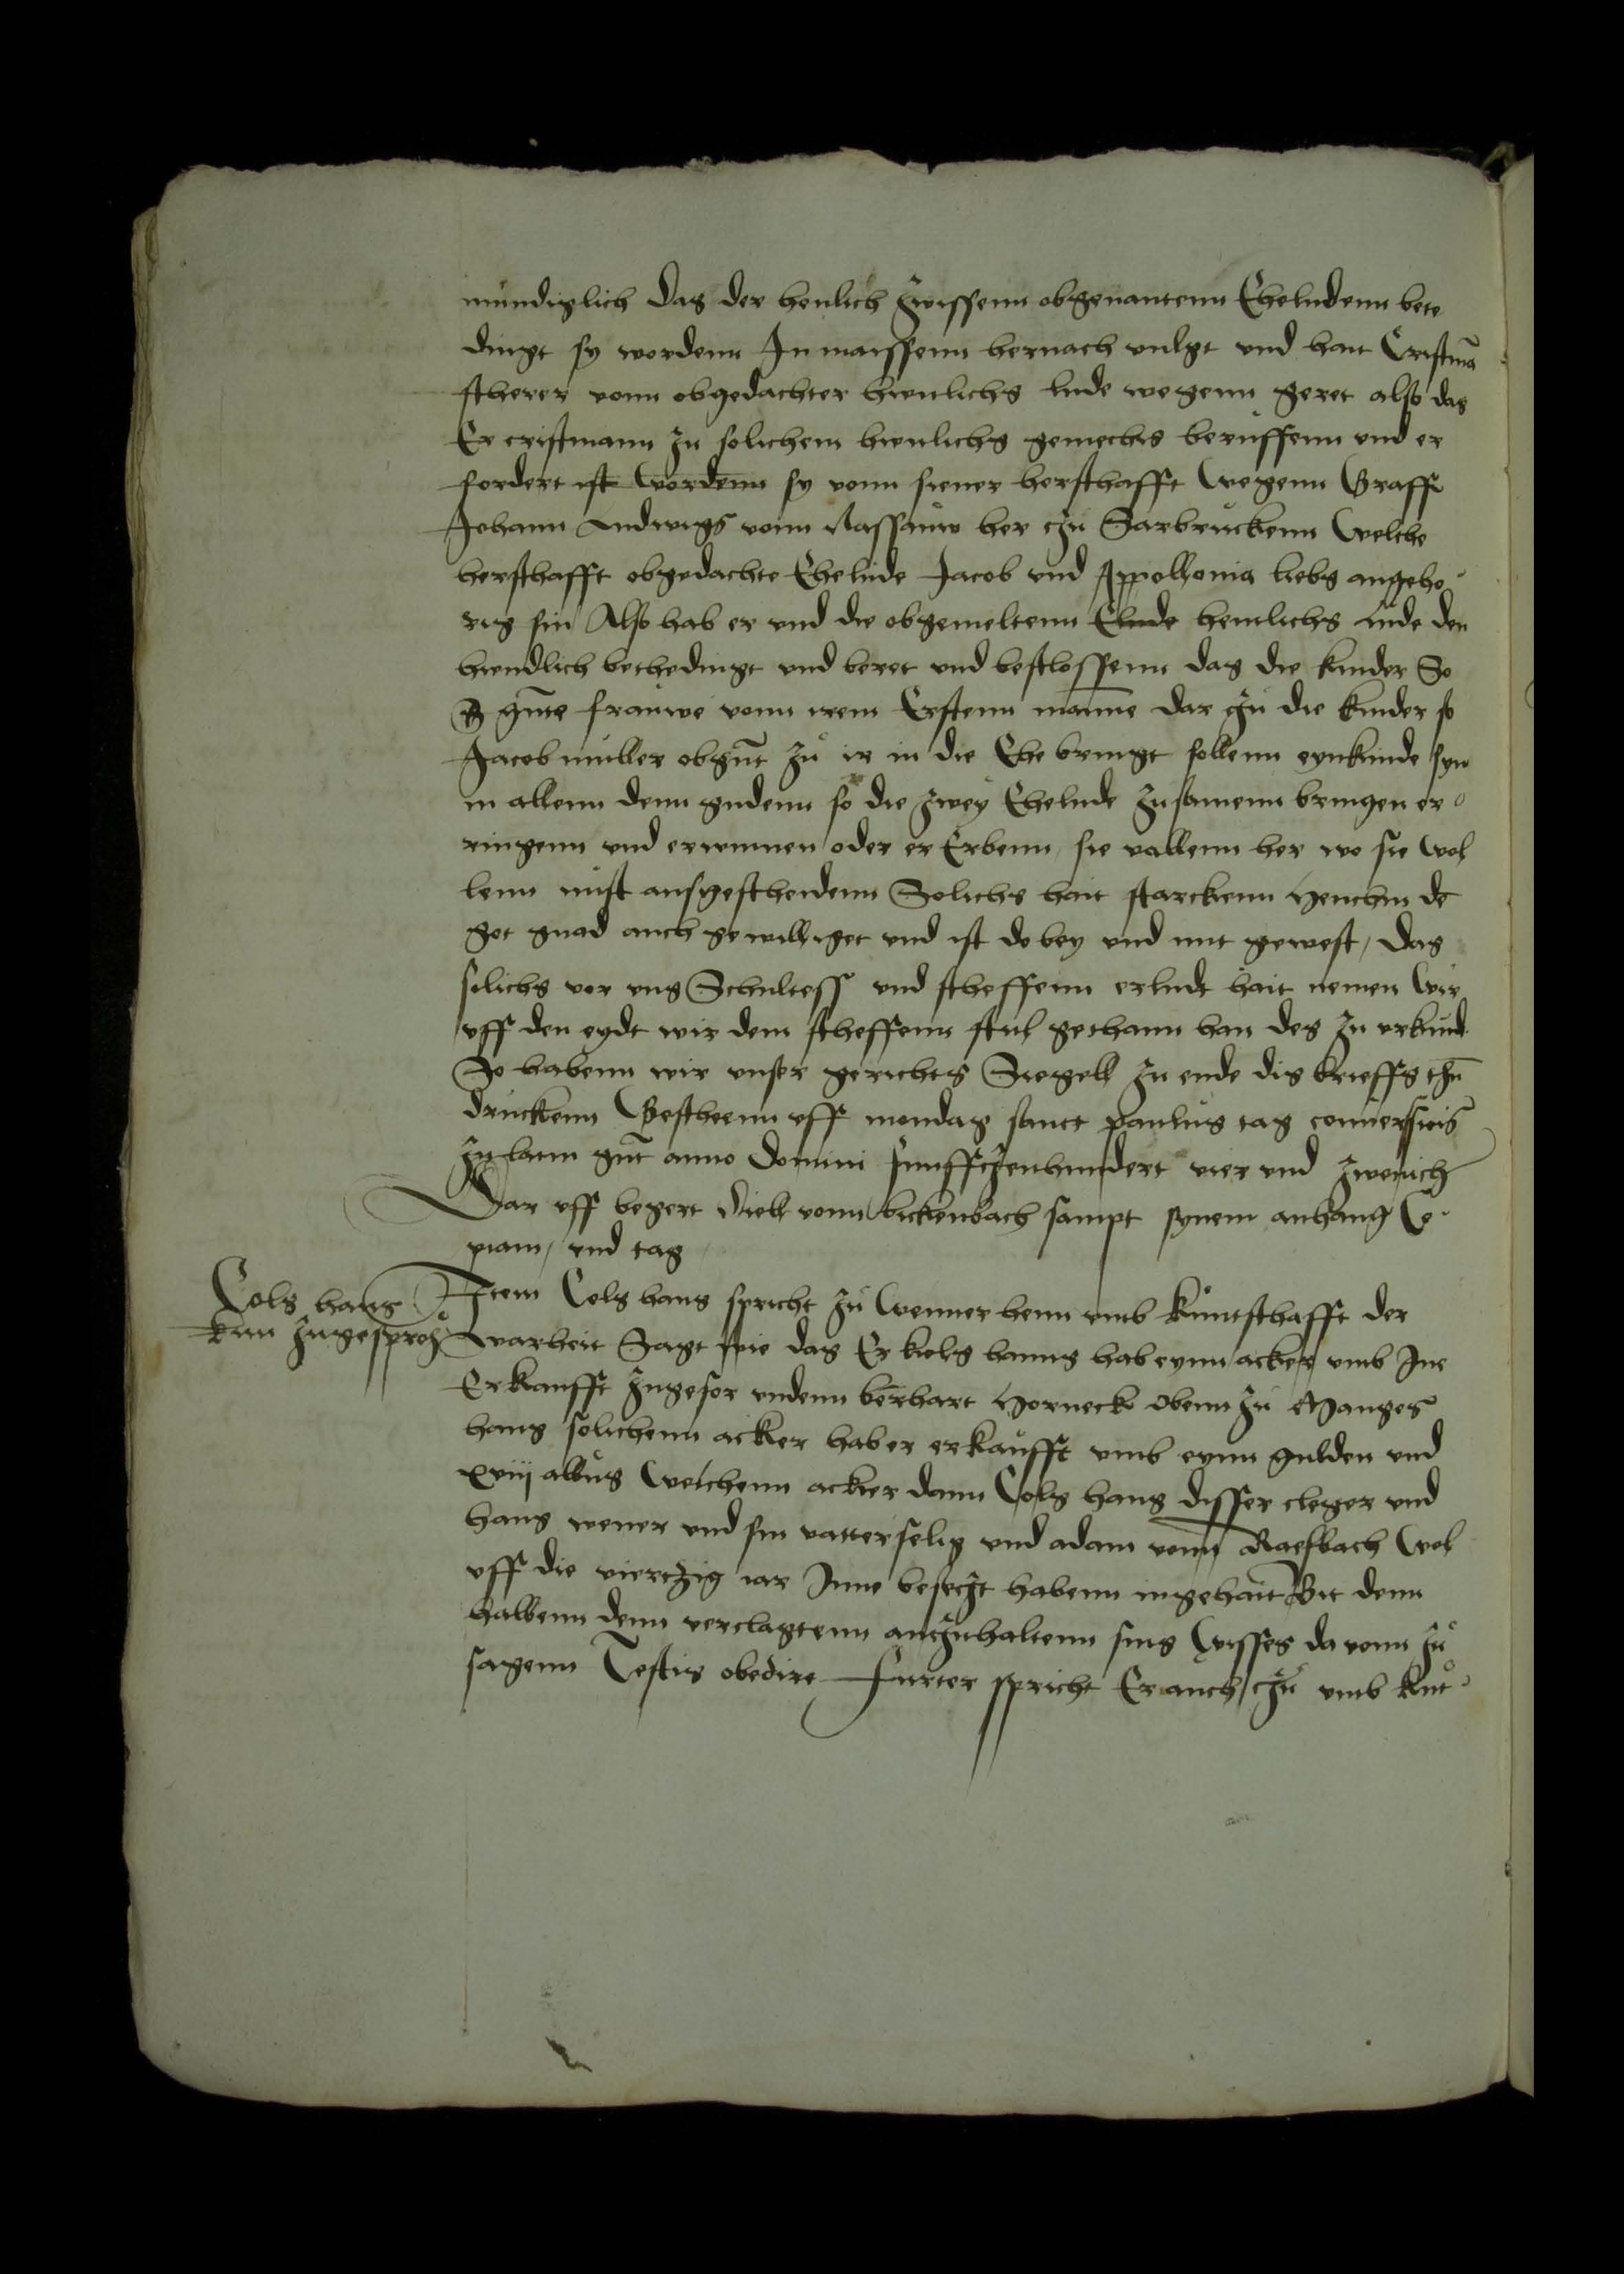 mundiglich das der henlich zwissenn obgenantenn Eheludenn bete
dingt sy wordenn In maissenn hernach volgt und hatt Cristma
scherer vonn obgedachter hienlichs lude wegenn geret also das
Er cristmann zu solichem hienlichs gemechts beruffenn und er
fordert ist wordenn sy vonn siener herschafft wegenn Graff
Johann Ludwigs vonn Nassauw her czu Sarbruckenn welche
herschafft obgedachte Ehelude Jacob und Appollonia liebs angeho
rig sin Also hab er und die obgemeltenn Elude henlichs lude den
hiendlich bethedingt und beret und beschlossenn das die kinder So
gnte frauwe vonn irem Erstenn manne dar czu die kinder so
Jacob muller obgnt zu ir in die Ehe bringt sollenn eynkinde syn
in allenn denn gudenn so die zwey Ehelude zusamenn bringen er
ringenn und erwinnen oder er Erbenn, sie vallenn her wo sie wol
lenn nust ausgescheidenn Solichs hait starckenn Henchin de
got gnad auch gewilliget und ist do bey und mit gewest, Das
solichs vor uns Schultess und scheffenn erludt hait nemen wir
uff den eydt wir dem scheffenn stul gethann han des zu urkund
So habenn wir unser gerichts Siegell zu ende dis brieffs thun
druckenn Gescheenn uff mondag sanct paulus tag conversiois
zu latin gnt anno Domini Funffczenhundert vier und zwenich
Dar uff begert Diell vonn bickenbach sampt synem anhang Co
piam, und tag
Cols hans
kun zugesproch
Item Cols hans spricht zu wenner henn umb kuntschafft der
warheit Sagt wie das Er kols hanns hab eynn acker umb Ine
Erkaufft zugefor undenn berhart Horneck obenn zu Manges
hans solichenn acker hab er erkaufft umb eynn gulden und
xviij albus welichenn acker dann Cols hans disser cleger und
hans wener und sin vatter selig und adam vonn Raesbach wol
uff die viertzig iar Inne beseczt habenn ingehait Bit denn
halbenn denn verclagtenn anczuhaltenn sins wisses da vonn zu
sagenn Testis obedire Furter spricht Er auch czu umb kut